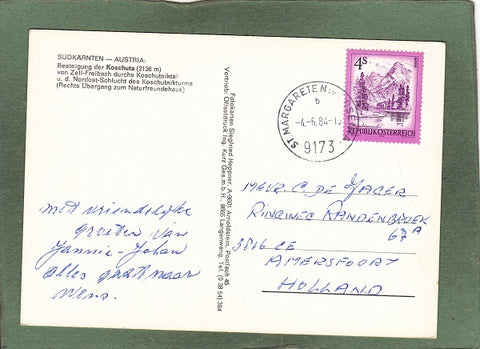 SÜDKÄRNTEN — AUSTRIA:
Besteigung der Koschuta (2136 m)
von Zell-Freibach durchs Koschutniktal
u. d. Nordost-Schlucht des Koschutnikturms
(Rechts Übergang zum Naturfreundehaus)
Fotokarten Siegfried Hepsner, A-9601 Arnoldstein, Postfach 45
Vertrieb: Offsetdruck Ing. Kurz Ges.m.b.H., 8665 Langenwang, Tel. (0 38 54) 384
ST. MARGARETEN
b
-4.-6.84-
9173
4S
REPUBLIK ÖSTERREICH
C. DE JAGER
RINGINEG RANDENBROEK
67A
3816 CE
AMERSFOORT
HOLLAND
met vriendelijke
groeten van
Jannie-Johan
alles gaat naar
wens.